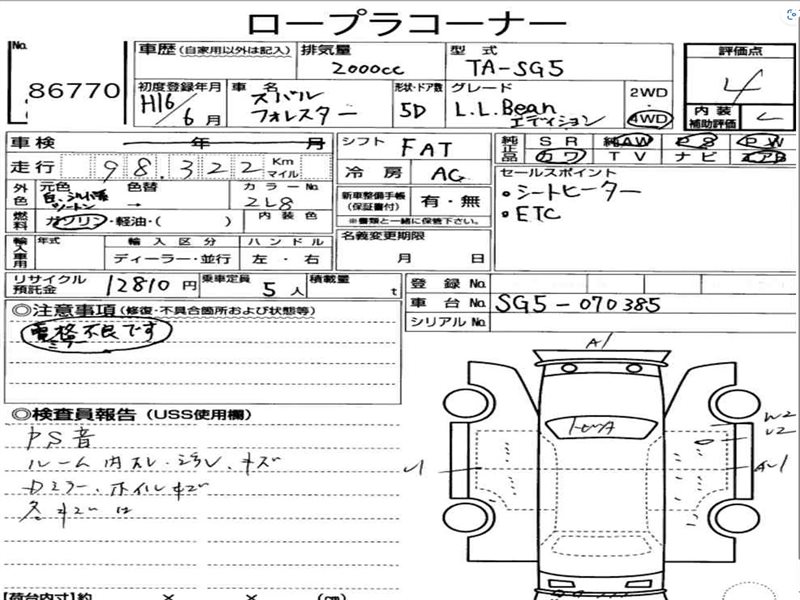 ロープラコーナー
No.
86770
車歴（自家用以外は記入）
排気量
2000cc
型式
TA-SG5
評価点
4
初度登録年月
H16/6月
車名
スバル
フォレスター
形状・ドア数
5D
グレード
L.L.Bean
エディション
2WD
4WD
内装
補助評価
C
車検 年 月
シフト
FAT
純正品
SR 純AW PS PW
カワ TV ナビ エアB
走行
98,322 Km
マイル
冷房
AC
セールスポイント
・シートヒーター
・ETC
外色
元色
色替
→
カラーNo.
2L8
新車整備手帳
（保証書付）
有・無
※書類と一緒に保管下さい。
燃料
ガソリン・軽油・( )
内装色
輸入車用
年式
輸入区分
ディーラー・並行
ハンドル
左・右
名義変更期限
月 日
リサイクル
預託金
12810 円
乗車定員
5 人
積載量
t
登録No.
車台No.
SG5-070385
シリアルNo.
◎注意事項（修復・不具合箇所および状態等）
電格不良です
ミラー
◎検査員報告（USS使用欄）
PS音
ルーム内スレ・汚レ・キズ
Dミラー・ホイルキズ
A1
W2
U2
【荷台内寸】約 × × (cm)